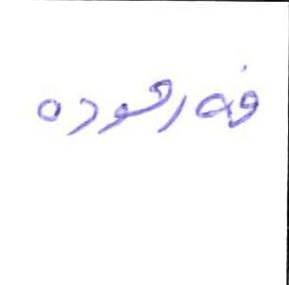 فەرهودە